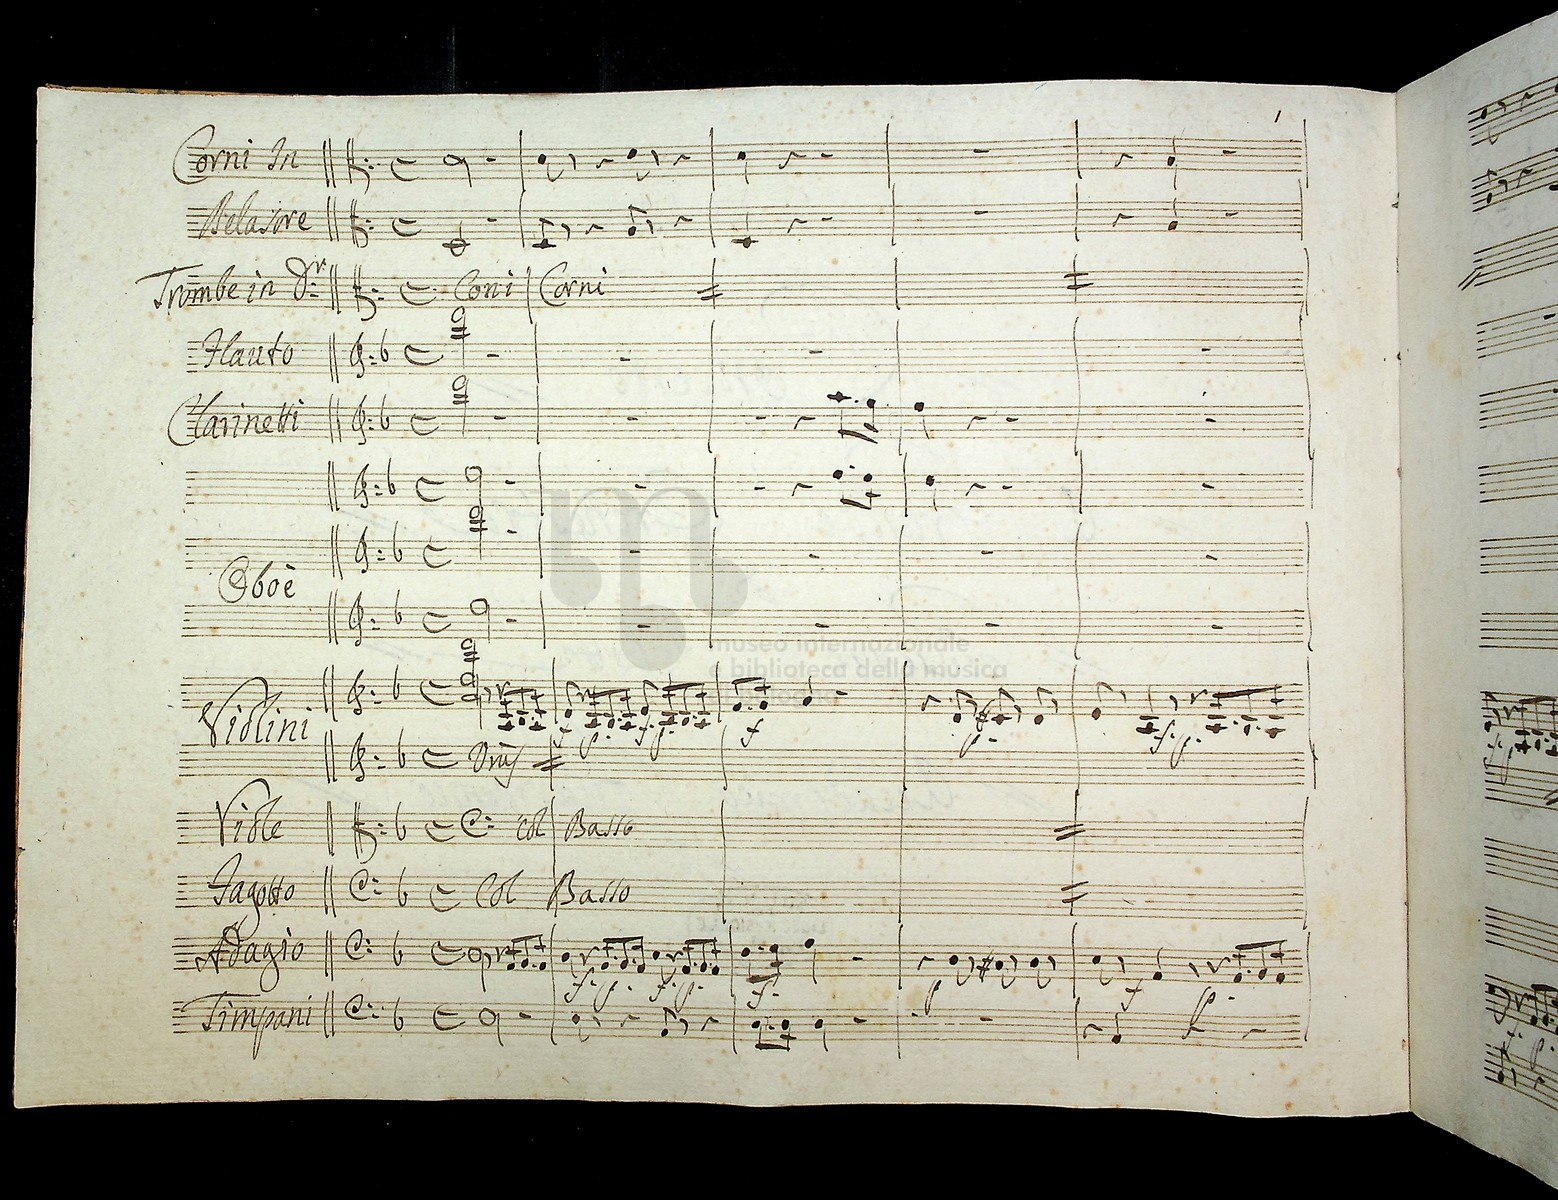 1
Corni In
Belasore
Trombe in D:r Coni Corni
Flauto
Clarinetti
Oboè
museo internazionale
e biblioteca della musica
Violini
f p. f. p. f p. f. p.
Viole col Basso
Fagotto Col Basso
Adagio
f. p. f. p. f. p f p.
Timpani